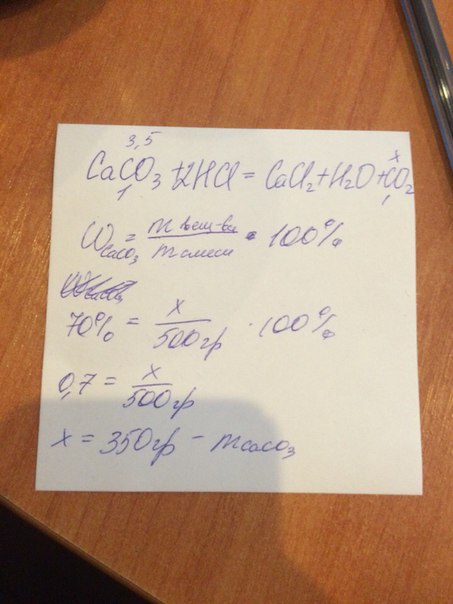 3,5 x
CaCO₃ + 2HCl = CaCl₂ + H₂O + CO₂
1 1
ω CaCO₃ = m вещ-ва / m смеси · 100%
70% = x / 500гр · 100%
0,7 = x / 500гр
x = 350гр - m CaCO₃